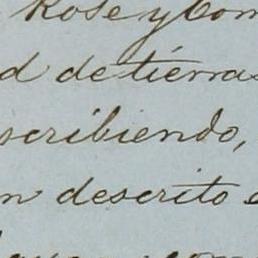 Rose y Com
d de tierras
scribiendo,
n descrito